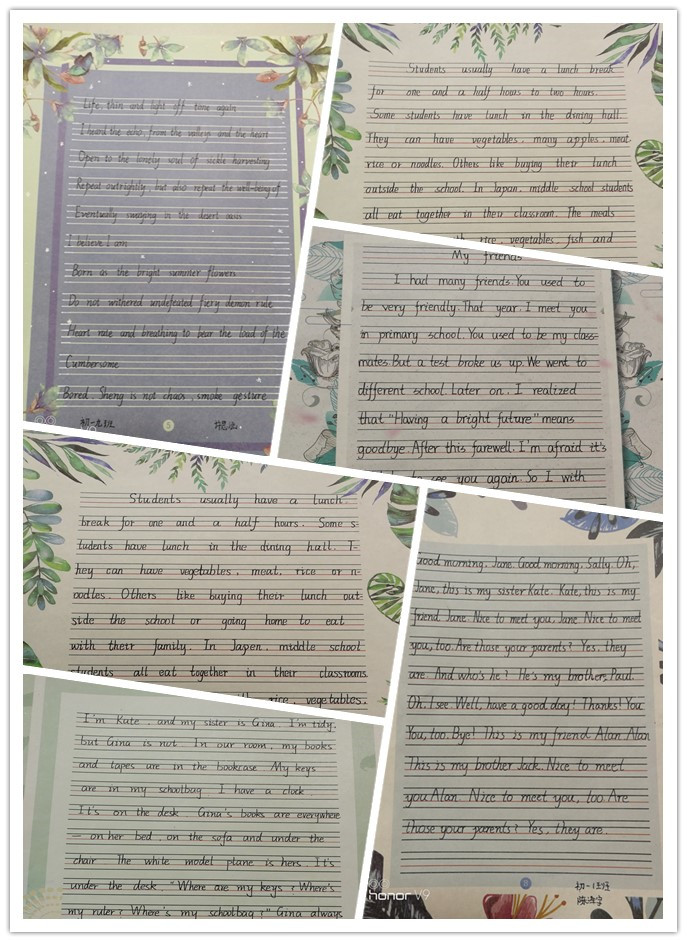 Life, thin and light off time again
I heard the echo, from the valleys and the heart
Open to the lonely soul of sickle harvesting
Repeat outrightly, but also repeat the well-being of
Eventually swaying in the desert oasis
I believe I am
Born as the bright summer flowers
Do not withered undefeated fiery demon rule
Heart rate and breathing to bear the load of the
Cumbersome
Bored Sheng is not chaos, smoke gesture
5
Students usually have a lunch break
for one and a half hours to two hours.
Some students have lunch in the dining hall.
They can have vegetables, many apples, meat,
rice or noodles. Others like buying their lunch
outside the school. In Japan, middle school students
all eat together in their classroom. The meals
rice, vegetables, fish and
My friends
I had many friends. You used to
be very friendly. That year, I meet you
in primary school. You used to be my class-
mates. But a test broke us up. We went to
different school. Later on, I realized
that "Having a bright future" means
goodbye. After this farewell. I'm afraid it's
see you again. So I with
Students usually have a lunch
break for one and a half hours. Some s-
tudents have lunch in the dining hall. T-
hey can have vegetables, meat, rice or n-
oodles. Others like buying their lunch out-
side the school or going home to eat
with their family. In Japen, middle school
students all eat together in their classrooms.
rice, vegetables,
good morning, Jane. Good morning, Sally. Oh,
Jane, this is my sister Kate. Kate, this is my
friend Jane. Nice to meet you, Jane. Nice to meet
you, too. Are those your parents? Yes, they
are. And who's he? He's my brother, Paul.
Oh, I see. Well, have a good day! Thanks! You
You, too. Bye! This is my friend Alan. Alan
This is my brother Jack. Nice to meet
you Alan. Nice to meet you, too. Are
those your parents? Yes, they are.
honor V9
I'm Kate, and my sister is Gina. I'm tidy,
but Gina is not. In our room, my books
and tapes are in the bookcase. My keys
are in my schoolbag. I have a clock.
It's on the desk. Gina's books are everywhere
— on her bed, on the sofa and under the
chair. The white model plane is hers. It's
under the desk. "Where are my keys? Where's
my ruler? Where's my schoolbag?" Gina always